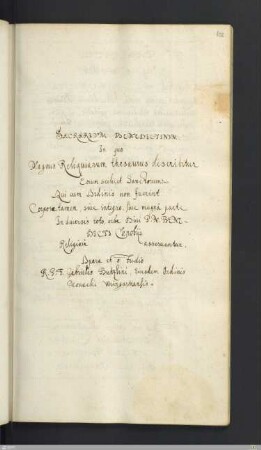 SACRARIUM BENEDICTINUM
In quo
Magnus Reliquiarum thesaurus describitur
Eorum scilicet Sanctorum
Qui cum Ordinis non fuerint
Corpora tamen, sive integra, sive magna parte
In diversis toto orbe Divi P. N. BENE-
DICTI Cœnobijs
Religiosè asservantur.
Opera et Studio
R. P. F. Gabrielis Bucelini, eiusdem Ordinis
Monachi Weingartensis.